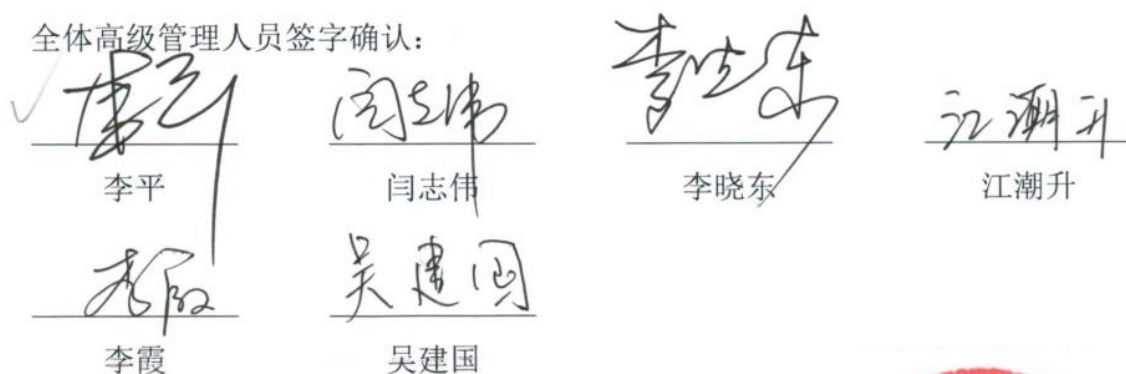 全体高级管理人员签字确认：
李平 闫志伟 李晓东 江潮升
李平 闫志伟 李晓东 江潮升
李霞 吴建国
李霞 吴建国